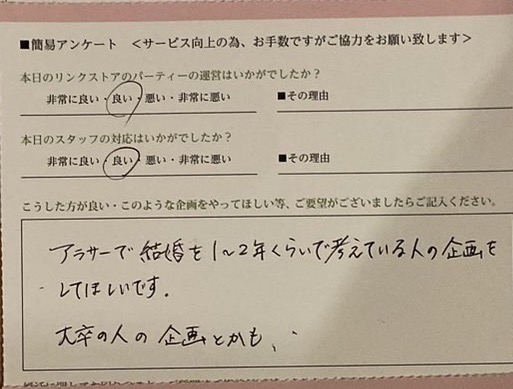 ■簡易アンケート ＜サービス向上の為、お手数ですがご協力をお願い致します＞
本日のリンクストアのパーティーの運営はいかがでしたか？
非常に良い・良い・悪い・非常に悪い ■その理由
本日のスタッフの対応はいかがでしたか？
非常に良い・良い・悪い・非常に悪い ■その理由
こうした方が良い・このような企画をやってほしい等、ご要望がございましたらご記入ください。
アラサーで結婚を1～2年くらいで考えている人の企画を
してほしいです.
大卒の人の企画とかも、